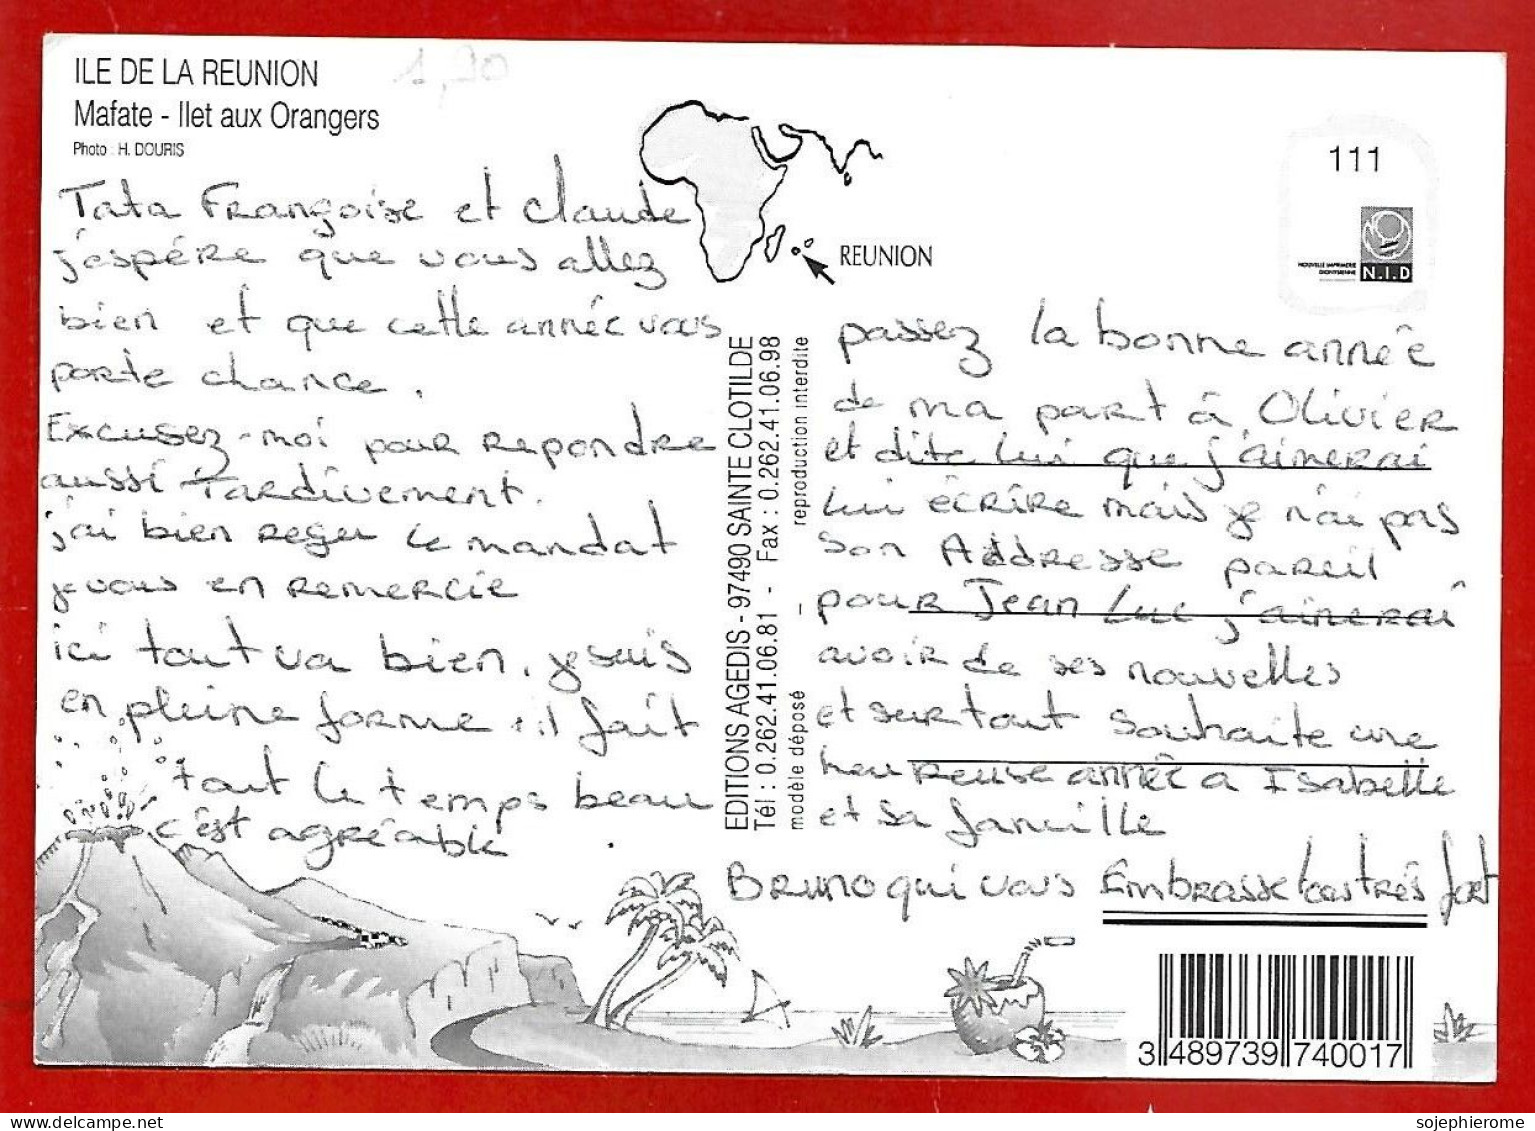 ILE DE LA REUNION
1,20
Mafate - Ilet aux Orangers
Photo : H. DOURIS
Tata Françoise et Claude
j'espére que vous allez
bien et que cette année vous
porte chance.
Excusez-moi pour repondre
aussi tardivement.
j'ai bien reçu le mandat
je vous en remercie
ici tout va bien, je suis
en pleine forme, il fait
tout le temps beau
c'est agréable.
REUNION
EDITIONS AGEDIS - 97490 SAINTE CLOTILDE
Tél : 0.262.41.06.81 - Fax : 0.262.41.06.98
modèle déposé - reproduction interdite
111
NOUVELLE IMPRIMERIE
DIONYSIENNE
N.I.D
passez la bonne année
de ma part à Olivier
et dite lui que j'aimerai
lui écrire mais je n'ai pas
son Addresse pareil
pour Jean Luc j'aimerai
avoir de ses nouvelles
et surtout souhaite une
heureuse année a Isabelle
et sa famille
Bruno qui vous Embrasse tous très fort
3 489739 740017
sojephierome